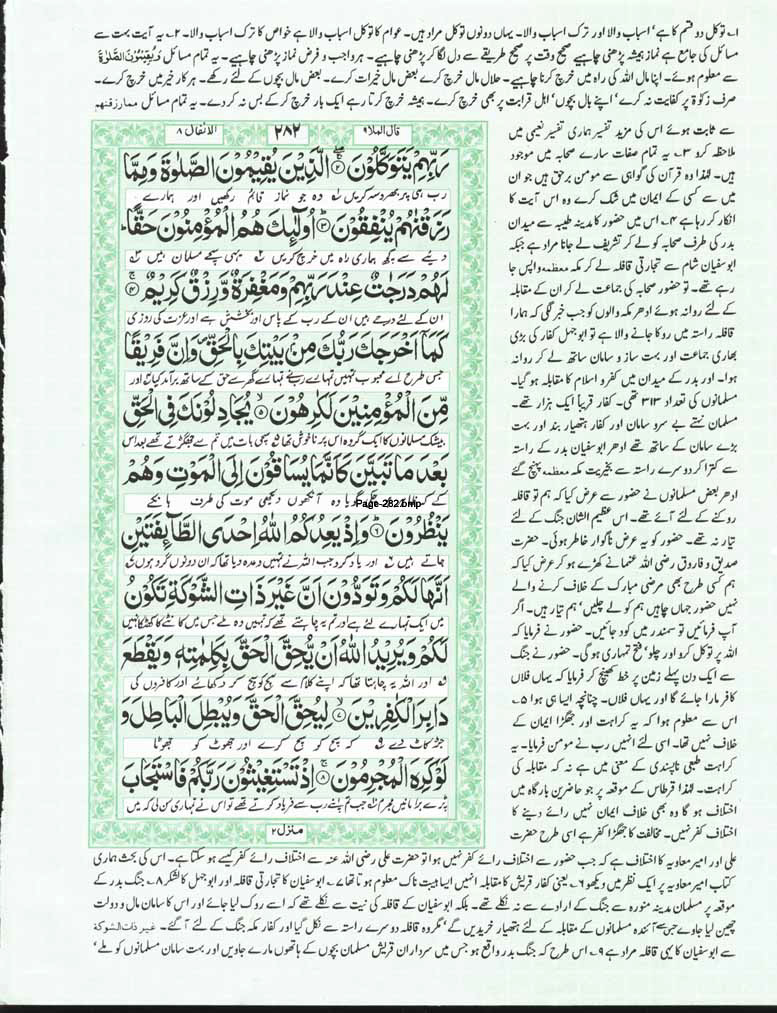 ۱۔ توکل دو قسم کا ہے' اسباب والا اور ترک اسباب والا۔ یہاں دونوں توکل مراد ہیں۔ عوام کا توکل اسباب والا ہے خواص کا ترک اسباب والا۔ ۲۔ یہ آیت بہت سے
مسائل کی جامع ہے نماز ہمیشہ پڑھنی چاہیے صحیح وقت پر صحیح طریقے سے دل لگا کر پڑھنی چاہیے۔ ہر واجب و فرض نماز پڑھنی چاہیے۔ یہ تمام مسائل وَيُقِيْمُوْنَ الصَّلٰوةَ
سے معلوم ہوئے۔ اپنا مال اللہ کی راہ میں خرچ کرنا چاہیے۔ حلال مال خرچ کرے بعض مال خیرات کرے۔ بعض مال بچوں کے لئے رکھے۔ ہر کار خیر میں خرچ کرے۔
صرف زکوٰۃ پر کفایت نہ کرے' اپنے بال بچوں' اہل قرابت پر بھی خرچ کرے۔ ہمیشہ خرچ کرتا رہے ایک بار خرچ کر کے بس نہ کر دے۔ یہ تمام مسائل ممارزقنھم
سے ثابت ہوئے اس کی مزید تفسیر ہماری تفسیر نعیمی میں
ملاحظہ کرو ۳۔ یہ تمام صفات سارے صحابہ میں موجود
ہیں۔ لہٰذا وہ قرآن کی گواہی سے مومن برحق ہیں جو ان
میں سے کسی کے ایمان میں شک کرے وہ اس آیت کا
انکار کر رہا ہے ۴۔ اس میں حضور کا مدینہ طیبہ سے میدان
بدر کی طرف صحابہ کو لے کر تشریف لے جانا مراد ہے جبکہ
ابوسفیان شام سے تجارتی قافلہ لے کر مکہ معظمہ واپس جا
رہے تھے۔ تو حضور صحابہ کی جماعت لے کر ان کے مقابلہ
کے لئے روانہ ہوئے ادھر مکہ والوں کو جب خبر لگی کہ ہمارا
قافلہ راستہ میں روکا جانے والا ہے تو ابوجہل کفار کی بڑی
بھاری جماعت اور بہت ساز و سامان ساتھ لے کر روانہ
ہوا۔ اور بدر کے میدان میں کفر و اسلام کا مقابلہ ہو گیا۔
مسلمانوں کی تعداد ۳۱۳ تھی۔ کفار قریباً ایک ہزار تھے۔
مسلمان نہتے بے سرو سامان اور کفار ہتھیار بند اور بہت
بڑے سامان کے ساتھ تھے ادھر ابوسفیان بدر کے راستہ
سے کترا کر دوسرے راستہ سے بخیریت مکہ معظمہ پہنچ گئے
ادھر بعض مسلمانوں نے حضور سے عرض کیا کہ ہم تو قافلہ
روکنے کے لئے آئے تھے۔ اس عظیم الشان جنگ کے لئے
تیار نہ تھے۔ حضور کو یہ عرض ناگوار خاطر ہوئی۔ حضرت
صدیق و فاروق رضی اللہ عنہما نے کھڑے ہو کر عرض کیا کہ
ہم کسی طرح بھی مرضی مبارک کے خلاف کرنے والے
نہیں حضور جہاں چاہیں ہم کو لے چلیں' ہم تیار ہیں۔ اگر
آپ فرمائیں تو سمندر میں کود جائیں۔ حضور نے فرمایا کہ
اللہ پر توکل کرو اور چلو' فتح تمہاری ہو گی۔ حضور نے جنگ
سے ایک دن پہلے زمین پر خط کھینچ کر فرمایا کہ یہاں فلاں
کافر مارا جائے گا اور یہاں فلاں۔ چنانچہ ایسا ہی ہوا ۵۔
اس سے معلوم ہوا کہ یہ کراہت اور جھگڑا ایمان کے
خلاف نہیں تھا۔ اسی لئے انہیں رب نے مومن فرمایا۔ یہ
کراہت طبعی ناپسندی کے معنی میں ہے نہ کہ مقابلہ کی
کراہت۔ لہٰذا قرطاس کے موقعہ پر جو حاضرین بارگاہ میں
اختلاف ہو گا وہ بھی خلاف ایمان نہیں رائے دینے کا
اختلاف کفر نہیں۔ مخالفت کا جھگڑا کفر ہے اسی طرح حضرت
قال الملا۹
۲۸۲
الانفال ۸
رَبِّهِمْ يَتَوَكَّلُوْنَ ۚ۲ الَّذِيْنَ يُقِيْمُوْنَ الصَّلٰوةَ وَمِمَّا
رب ہی پر بھروسہ کریں وہ جو نماز قائم رکھیں اور ہمارے
رَزَقْنٰهُمْ يُنْفِقُوْنَ ۳ اُولٰٓئِكَ هُمُ الْمُؤْمِنُوْنَ حَقًّا
دیئے سے کچھ ہماری راہ میں خرچ کریں یہی سچے مسلمان ہیں
لَهُمْ دَرَجٰتٌ عِنْدَ رَبِّهِمْ وَمَغْفِرَةٌ وَّرِزْقٌ كَرِيْمٌ ۴
ان کے لئے درجے ہیں ان کے رب کے پاس اور بخشش ہے اور عزت کی روزی
كَمَآ اَخْرَجَكَ رَبُّكَ مِنْۢ بَيْتِكَ بِالْحَقِّ وَاِنَّ فَرِيْقًا
جس طرح اے محبوب تمہیں تمہارے رب نے تمہارے گھر سے حق کے ساتھ برآمد کیا اور
مِّنَ الْمُؤْمِنِيْنَ لَكٰرِهُوْنَ ۵ يُجَادِلُوْنَكَ فِي الْحَقِّ
بیشک مسلمانوں کا ایک گروہ اس پر ناخوش تھا سچی بات میں تم سے جھگڑتے تھے بعد اس
بَعْدَ مَا تَبَيَّنَ كَاَنَّمَا يُسَاقُوْنَ اِلَى الْمَوْتِ وَهُمْ
کے کہ ظاہر ہو چکی گویا وہ آنکھوں دیکھی موت کی طرف ہانکے
Page-282.bmp
يَنْظُرُوْنَ ۶ وَاِذْ يَعِدُكُمُ اللّٰهُ اِحْدَى الطَّآئِفَتَيْنِ
جاتے ہیں اور یاد کرو جب اللہ نے تمہیں وعدہ دیا تھا کہ ان دونوں گروہوں
اَنَّهَا لَكُمْ وَتَوَدُّوْنَ اَنَّ غَيْرَ ذَاتِ الشَّوْكَةِ تَكُوْنُ
میں ایک تمہارے لئے ہے اور تم یہ چاہتے تھے کہ تمہیں وہ ملے جس میں کانٹے کا کھٹکا نہیں
لَكُمْ وَيُرِيْدُ اللّٰهُ اَنْ يُّحِقَّ الْحَقَّ بِكَلِمٰتِهٖ وَيَقْطَعَ
اور اللہ یہ چاہتا تھا کہ اپنے کلام سے سچ کو سچ کر دکھائے اور کافروں کی
دَابِرَ الْكٰفِرِيْنَ ۷ لِيُحِقَّ الْحَقَّ وَيُبْطِلَ الْبَاطِلَ وَ
جڑ کاٹ دے کہ سچ کو سچ کرے اور جھوٹ کو جھوٹا
لَوْ كَرِهَ الْمُجْرِمُوْنَ ۸ اِذْ تَسْتَغِيْثُوْنَ رَبَّكُمْ فَاسْتَجَابَ
پڑے برا مانیں مجرم جب تم اپنے رب سے فریاد کرتے تھے تو اس نے تمہاری سن لی کہ میں
منزل ۲
علی اور امیر معاویہ کا اختلاف ہے کہ جب حضور سے اختلاف رائے کفر نہیں ہوا تو حضرت علی رضی اللہ عنہ سے اختلاف رائے کفر کیسے ہو سکتا ہے۔ اس کی بحث ہماری
کتاب امیر معاویہ پر ایک نظر میں دیکھو ۶۔ یعنی کفار قریش کا مقابلہ انہیں ایسا ہیبت ناک معلوم ہوتا تھا ۷۔ ابوسفیان کا تجارتی قافلہ اور ابوجہل کا لشکر ۸۔ جنگ بدر کے
موقعہ پر مسلمان مدینہ منورہ سے جنگ کے ارادے سے نہ نکلے تھے۔ بلکہ ابوسفیان کے قافلہ کی نیت سے نکلے تھے کہ اسے روک لیا جائے اور اس کا سامان مال و دولت
چھین لیا جاوے جس سے آئندہ مسلمانوں کے مقابلہ کے لئے ہتھیار خریدیں گے' مگر وہ قافلہ دوسرے راستہ سے نکل گیا اور کفار مکہ جنگ کے لئے آ گئے۔ غیر ذات الشوکة
سے ابوسفیان کا یہی قافلہ مراد ہے ۹۔ اس طرح کہ جنگ بدر واقع ہو جس میں سرداران قریش مسلمان بچوں کے ہاتھوں مارے جاویں اور بہت سامان مسلمانوں کو ملے'